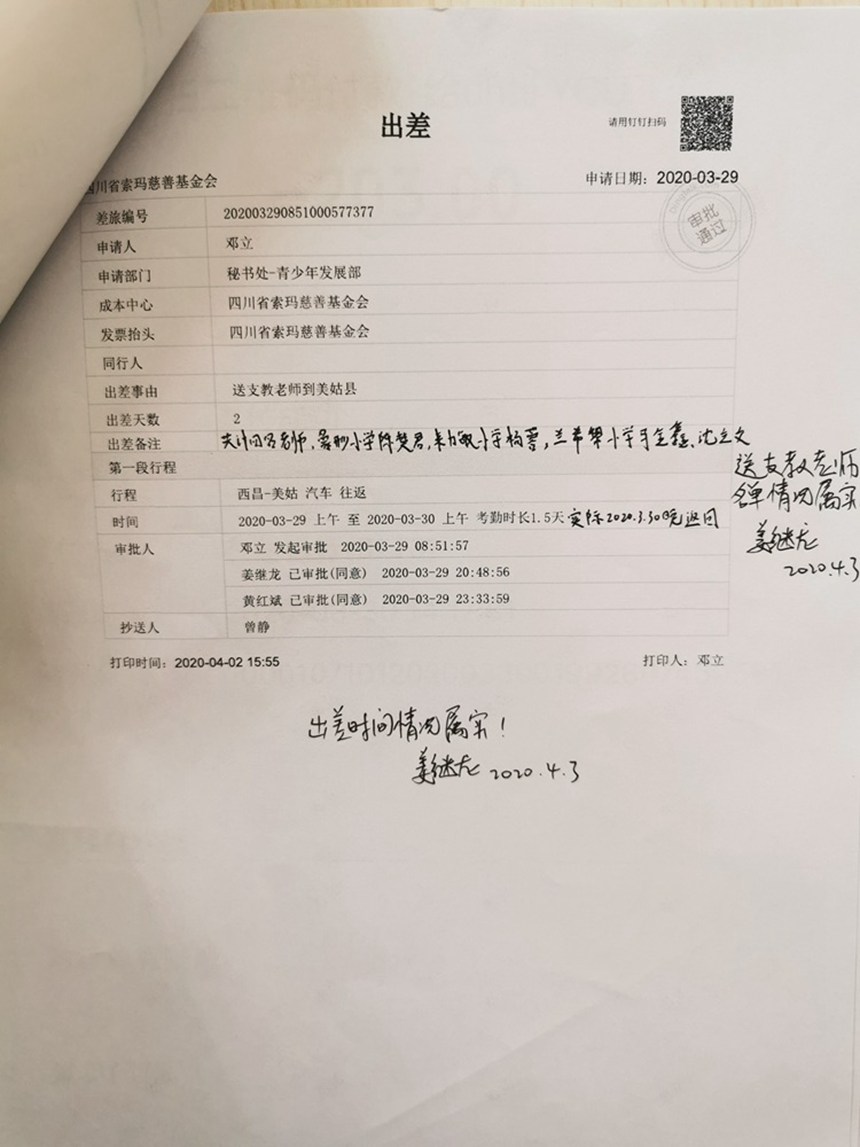 出差
请用钉钉扫码
四川省索玛慈善基金会
申请日期：2020-03-29
审批
通过
差旅编号 202003290851000577377
申请人 邓立
申请部门 秘书处-青少年发展部
成本中心 四川省索玛慈善基金会
发票抬头 四川省索玛慈善基金会
同行人
出差事由 送支教老师到美姑县
出差天数 2
出差备注 老师，小学 小学 小学
送支教老师
名单情况属实
姜继龙
2020.4.3
第一段行程
行程 西昌-美姑 汽车 往返
时间 2020-03-29 上午 至 2020-03-30 上午 考勤时长1.5天 实际2020.3.30晚返回
审批人 邓立 发起审批 2020-03-29 08:51:57
姜继龙 已审批(同意) 2020-03-29 20:48:56
黄红斌 已审批(同意) 2020-03-29 23:33:59
抄送人 曾静
打印时间：2020-04-02 15:55
打印人：邓立
出差时间情况属实！
姜继龙 2020.4.3